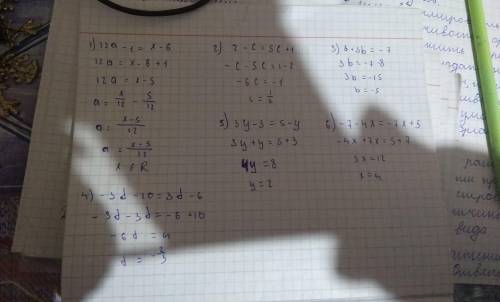 1) 12a - 1 = x - 6
12a = x - 6 + 1
12a = x - 5
a = x/12 - 5/12
a = x-5/12
a = x-5/12
x ∈ R
2) 2 - c = 5c + 1
- c - 5c = 1 - 2
- 6c = -1
c = 1/6
3) 8 + 3b = -7
3b = -7 - 8
3b = -15
b = -5
4) - 3d - 10 = 3d - 6
- 3d - 3d = - 6 + 10
- 6d = 4
d = -2/3
5) 3y - 3 = 5 - y
3y + y = 5 + 3
4y = 8
y = 2
6) -7 - 4x = -7x + 5
-4x + 7x = 5 + 7
3x = 12
x = 4
вида